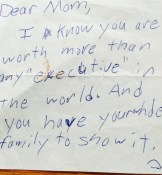 Dear Mom,
I know you are
worth more than
any "executive" in
the world. And
you have your whole
family to show it.